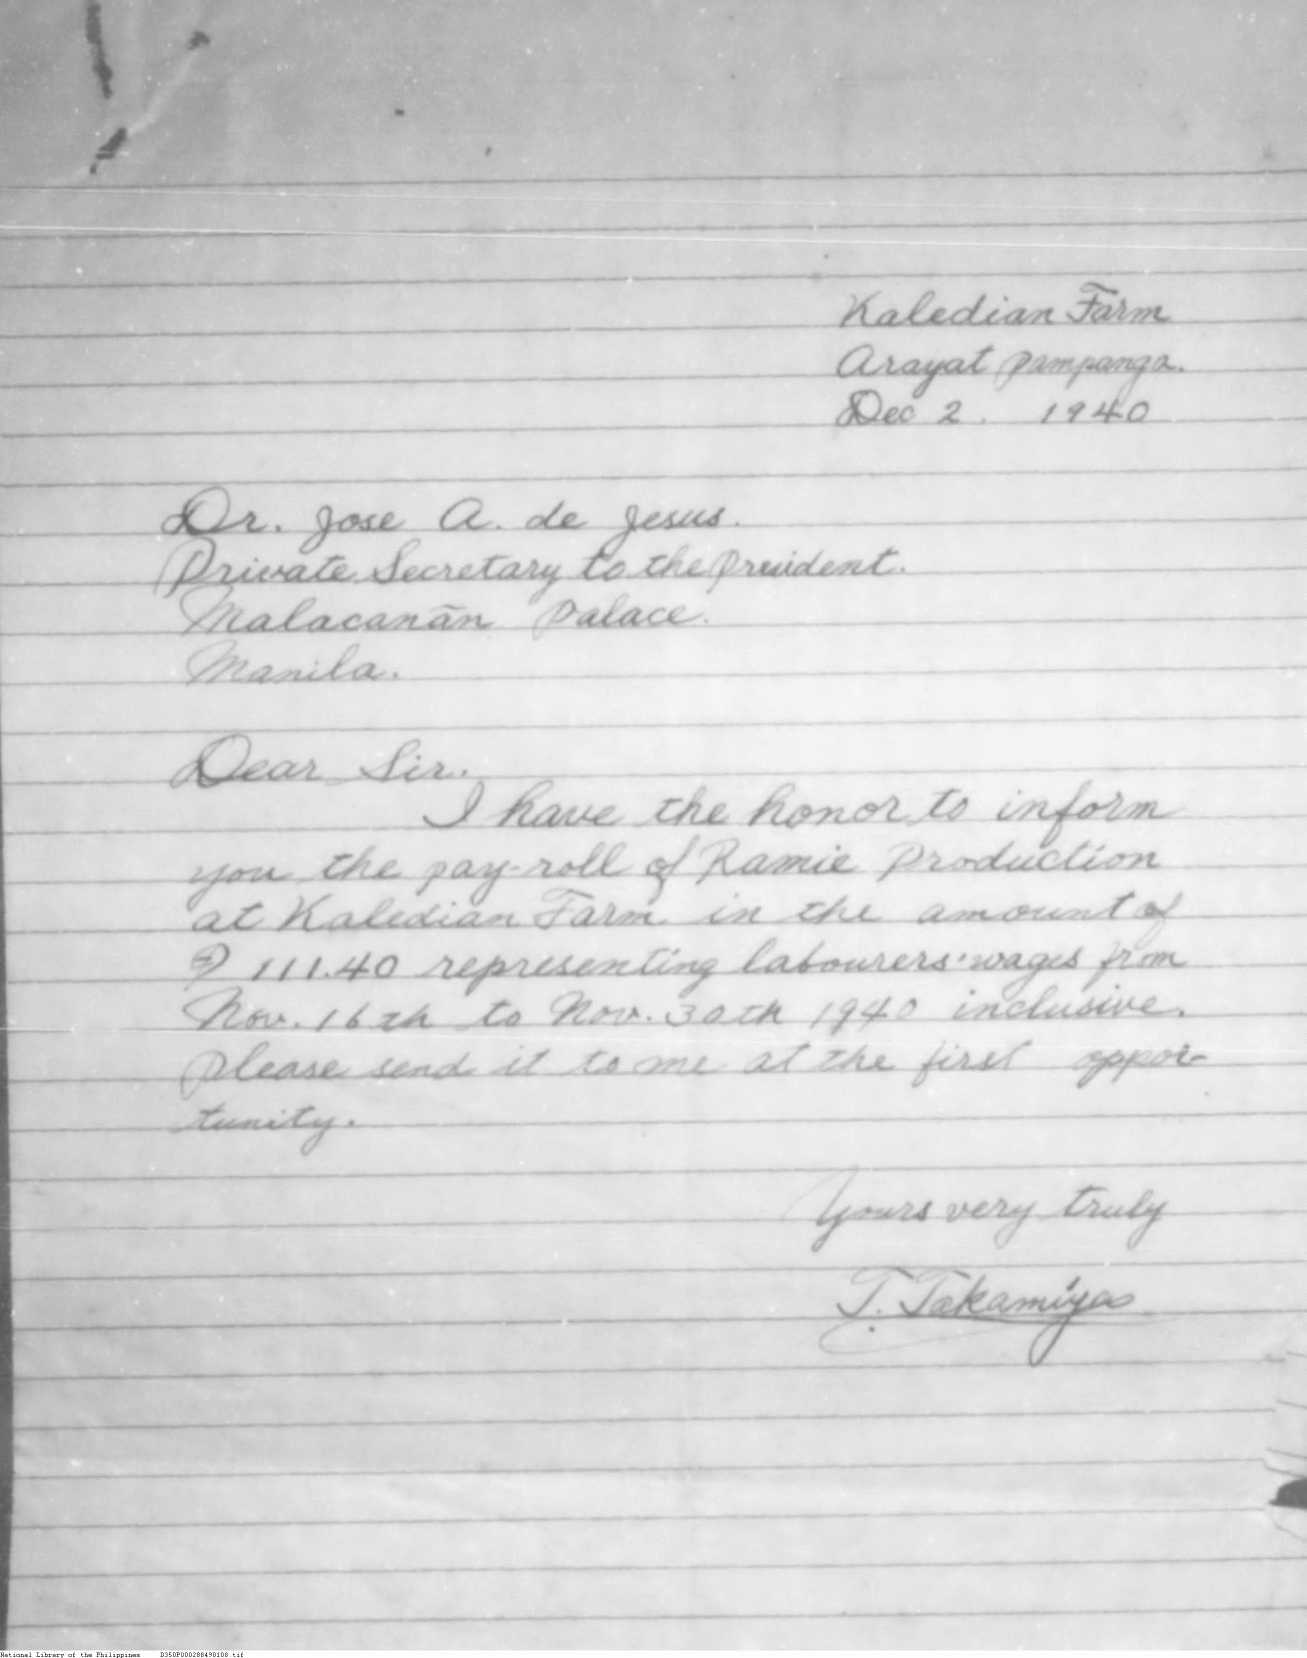 Kaledian Farm
Arayat Pampanga.
Dec 2. 1940
Dr. Jose A. de Jesus.
Private Secretary to the President.
Malacanān Palace.
Manila.
Dear Sir.
I have the honor to inform
you the pay-roll of Ramie Production
at Kaledian Farm in the amount of
₱ 111.40 representing labourers' wages from
Nov. 16th to Nov. 30th 1940 inclusive.
Please send it to me at the first oppor-
tunity.
Yours very truly
T. Takamiya
National Library of the Philippines D350P000288490108.tif